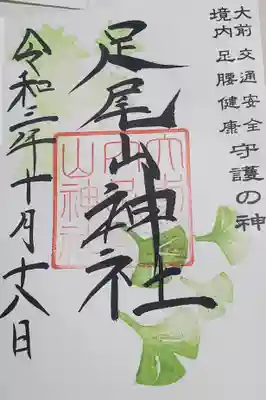 大前 交通安全
境内 足腰健康
守護の神
足尾山神社
令和三年十月十八日